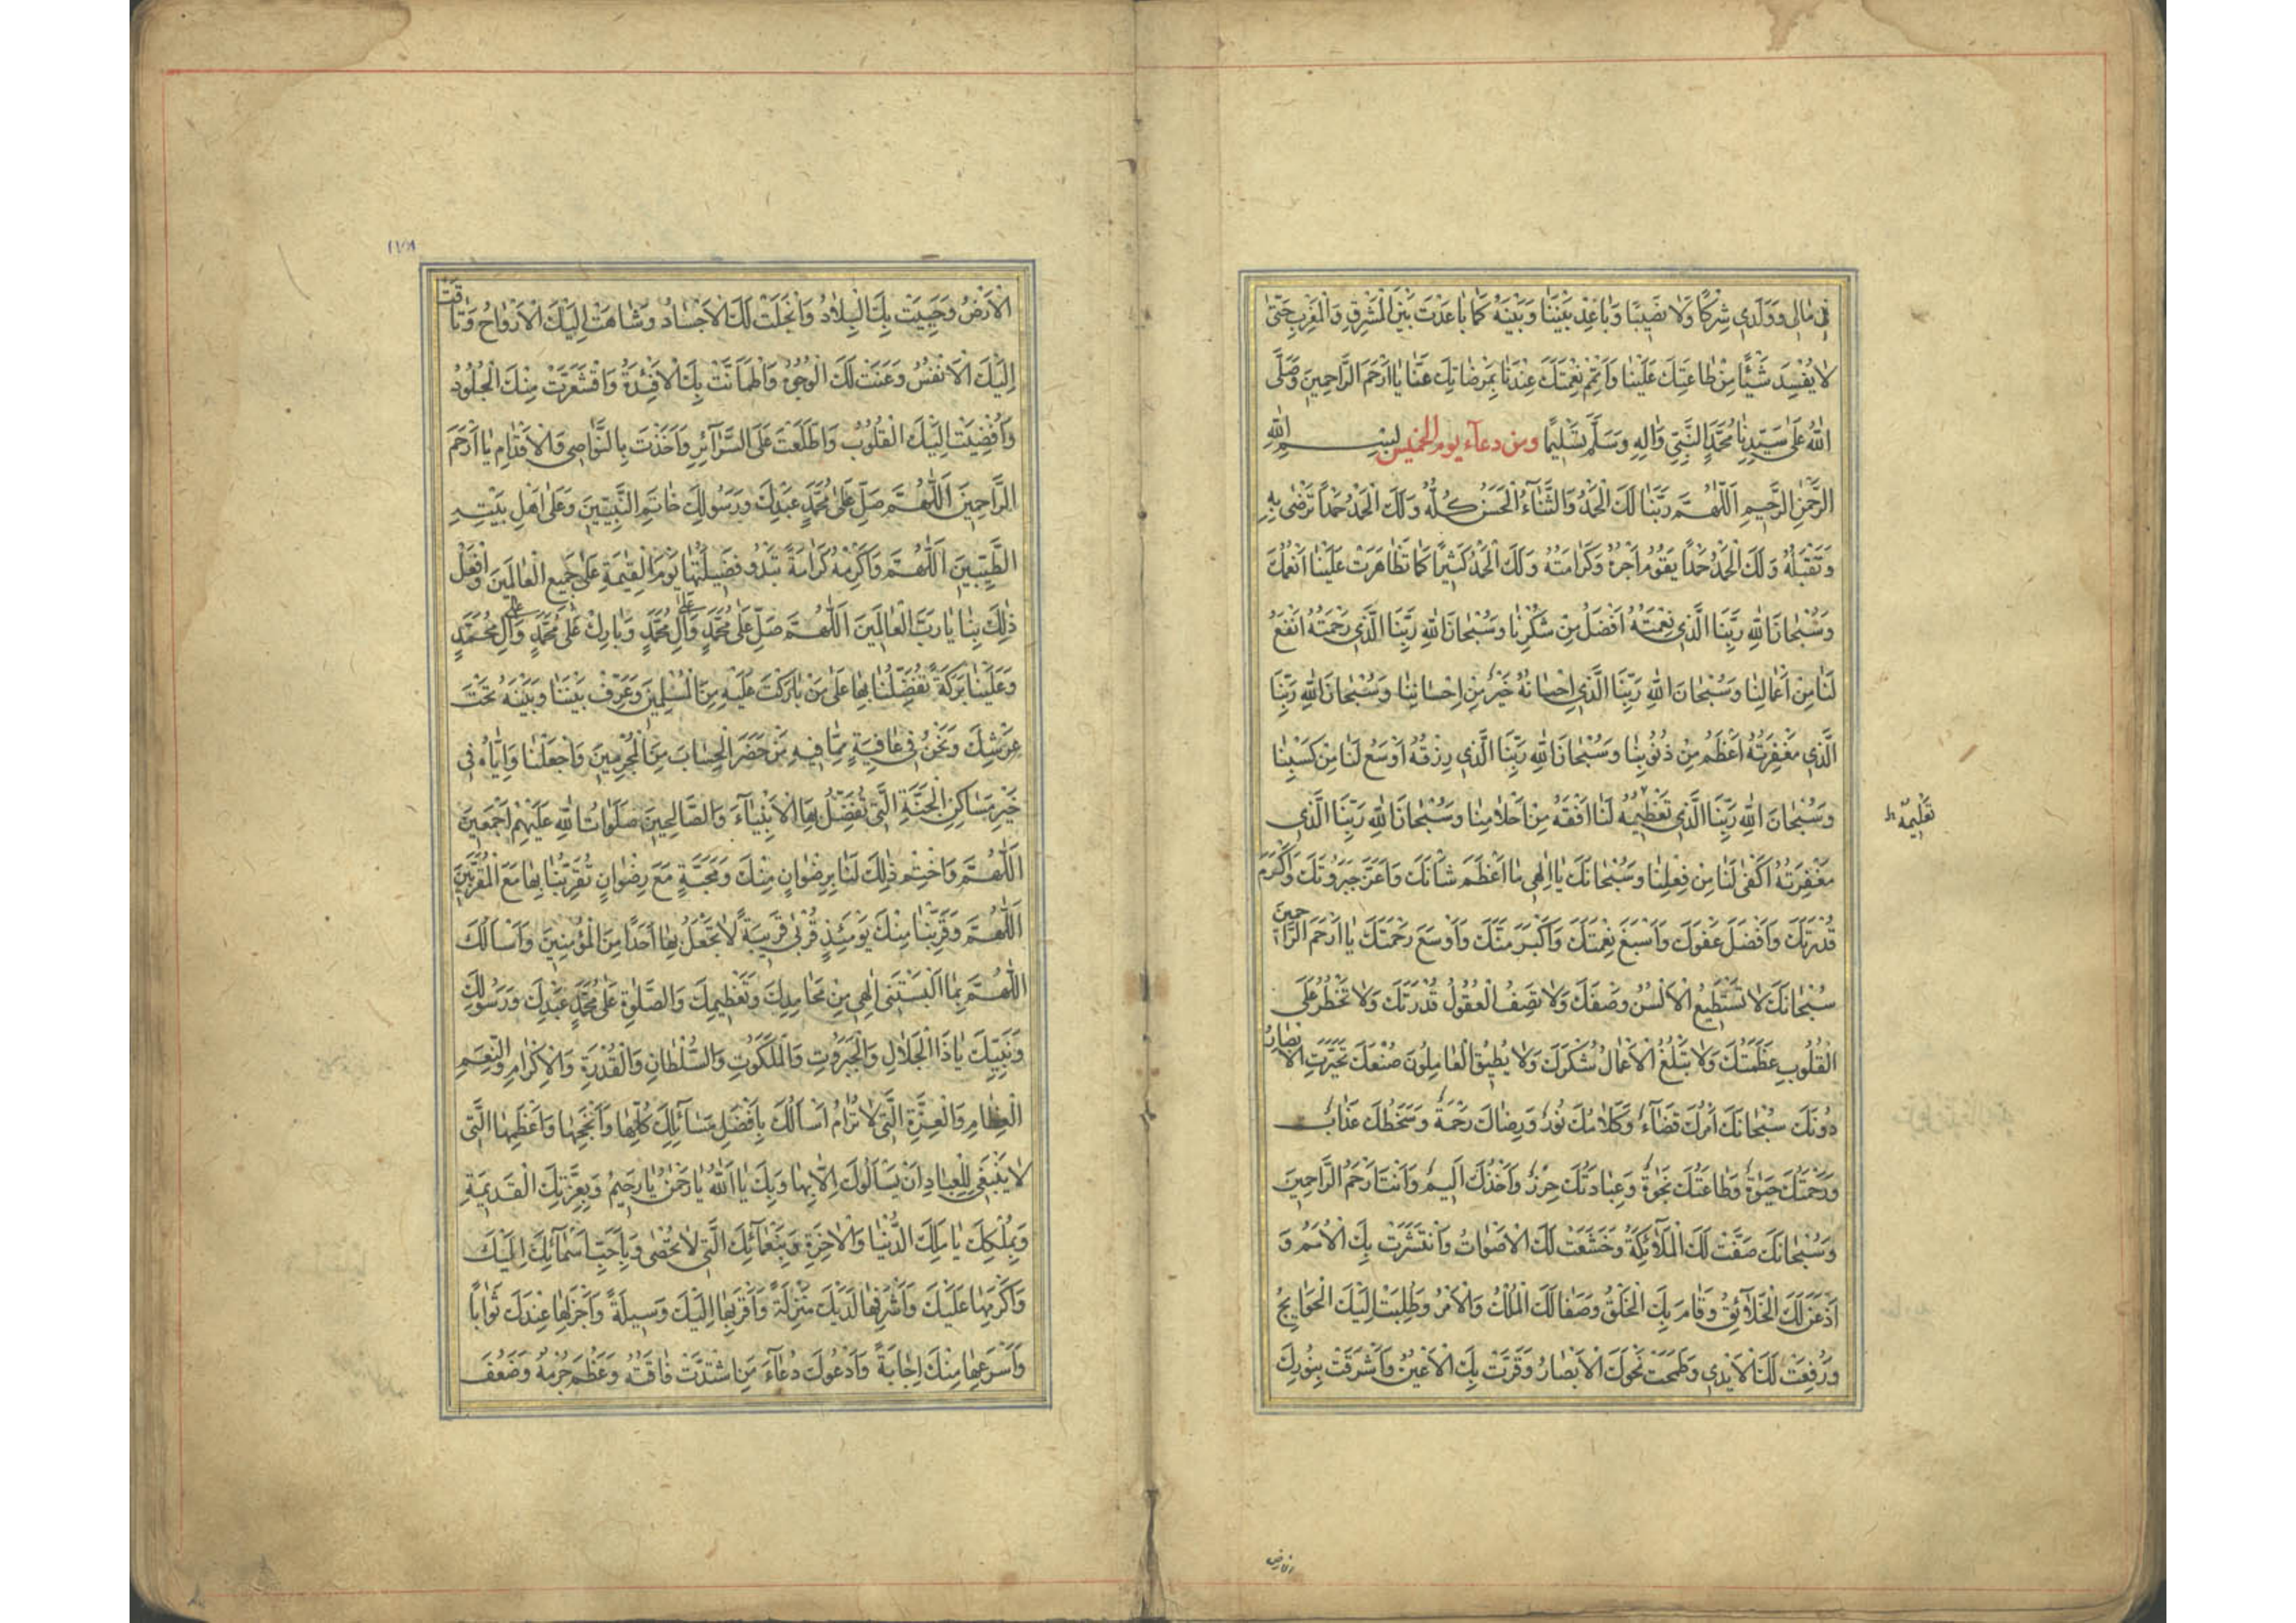 في مٰالي وَوَلَدي شِرْكًا وَلٰا نَصيبًا وَبٰاعِدْ بَيْنَنٰا وَبَيْنَهُ كَمٰا بٰاعَدْتَ بَيْنَ الْمَشْرِقِ وَالْمَغْرِبِ حَتّىٰ
لٰا يُفْسِدَ شَيْئًا مِنْ طٰاعَتِكَ عَلَيْنٰا وَاَتْمِمْ نِعْمَتَكَ عِنْدَنٰا بِمَرْضٰاتِكَ عَنّٰا يٰا اَرْحَمَ الرّٰاحِمينَ وَصَلَّى
اللهُ عَلىٰ سَيِّدِنٰا مُحَمَّدٍ النَّبِيِّ وَاٰلِهِ وَسَلَّمَ تَسْليمًا ومن دعاء يوم الخميس بِسْمِ اللهِ
الرَّحْمٰنِ الرَّحيمِ اَللّٰهُمَّ رَبَّنٰا لَكَ الْحَمْدُ وَالثَّنٰاءُ الْحَسَنُ كُلُّهُ وَلَكَ الْحَمْدُ حَمْدًا تَرْضىٰ بِهِ
وَتَقْبَلُهُ وَلَكَ الْحَمْدُ حَمْدًا يَقُومُ اَجْرُهُ وَكَرٰامَتُهُ وَلَكَ الْحَمْدُ كَثيرًا كَمٰا تَظٰاهَرَتْ عَلَيْنٰا اَنْعُمُكَ
وَسُبْحٰانَ اللهِ رَبِّنَا الَّذي نِعْمَتُهُ اَفْضَلُ مِنْ شُكْرِنٰا وَسُبْحٰانَ اللهِ رَبِّنَا الَّذي رَحْمَتُهُ اَنْفَعُ
لَنٰا مِنْ اَعْمٰالِنٰا وَسُبْحٰانَ اللهِ رَبِّنَا الَّذي اِحْسٰانُهُ خَيْرٌ مِنْ اِحْسٰانِنٰا وَسُبْحٰانَ اللهِ رَبِّنَا
الَّذي مَغْفِرَتُهُ اَعْظَمُ مِنْ ذُنُوبِنٰا وَسُبْحٰانَ اللهِ رَبِّنَا الَّذي رِزْقُهُ اَوْسَعُ لَنٰا مِنْ كَسْبِنٰا
وَسُبْحٰانَ اللهِ رَبِّنَا الَّذي تَعْظيمُهُ لَنٰا اَفْقَهُ مِنْ اَحْلٰامِنٰا وَسُبْحٰانَ اللهِ رَبِّنَا الَّذي
تَعْليمُهُ
مَغْفِرَتُهُ اَكْفىٰ لَنٰا مِنْ فِعْلِنٰا وَسُبْحٰانَكَ يٰا اِلٰهي مٰا اَعْظَمَ شَأْنَكَ وَاَعَزَّ جَبَرُوتَكَ وَاَكْرَمَ
قُدْرَتَكَ وَاَفْضَلَ عَفْوَكَ وَاَسْبَغَ نِعْمَتَكَ وَاَكْبَرَ مَنَّكَ وَاَوْسَعَ رَحْمَتَكَ يٰا اَرْحَمَ الرّٰاحِمينَ
سُبْحٰانَكَ لٰا تَسْتَطيعُ الْاَلْسُنُ وَصْفَكَ وَلٰا تَصِفُ الْعُقُولُ قُدْرَتَكَ وَلٰا تَخْطُرُ عَلَى
الْقُلُوبِ عَظَمَتُكَ وَلٰا تَبْلُغُ الْاَعْمٰالُ شُكْرَكَ وَلٰا يُطيقُ الْعٰامِلُونَ صُنْعَكَ تَحَيَّرَتِ الْاَبْصٰارُ
دُونَكَ سُبْحٰانَكَ اَمْرُكَ قَضٰاءٌ وَكَلٰامُكَ نُورٌ وَرِضٰاكَ رَحْمَةٌ وَسَخَطُكَ عَذٰابٌ
وَرَحْمَتُكَ حَيٰوةٌ وَطٰاعَتُكَ نَجٰوةٌ وَعِبٰادَتُكَ حِرْزٌ وَاَخْذُكَ اَليمٌ وَاَنْتَ اَرْحَمُ الرّٰاحِمينَ
وَسُبْحٰانَكَ صَفَّتْ لَكَ الْمَلٰائِكَةُ وَخَشَعَتْ لَكَ الْاَصْوٰاتُ وَانْتَشَرَتْ بِكَ الْاُمَمُ وَ
اَذْعَنَ لَكَ الْخَلٰائِقُ وَقٰامَ بِكَ الْخَلْقُ وَصَفٰا لَكَ الْمُلْكُ وَالْاَمْرُ وَطُلِبَتْ اِلَيْكَ الْحَوٰائِجُ
وَرُفِعَتْ لَكَ الْاَيْدي وَطَمَحَتْ نَحْوَكَ الْاَبْصٰارُ وَقَرَّتْ بِكَ الْاَعْيُنُ وَاَشْرَقَتْ بِنُورِكَ
الارض
الْاَرْضُ وَحَيِيَتْ بِكَ الْبِلٰادُ وَانْجَلَتْ لَكَ الْاَجْسٰادُ وَتَنٰاهَتْ اِلَيْكَ الْاَرْوٰاحُ وَتٰاقَتْ
اِلَيْكَ الْاَنْفُسُ وَعَنَتْ لَكَ الْوُجُوهُ وَاطْمَاَنَّتْ بِكَ الْاَفْئِدَةُ وَاقْشَعَرَّتْ مِنْكَ الْجُلُودُ
وَاُفْضِيَتْ اِلَيْكَ الْقُلُوبُ وَاطَّلَعْتَ عَلَى السَّرٰائِرِ وَاَخَذْتَ بِالنَّوٰاصي وَالْاَقْدٰامِ يٰا اَرْحَمَ
الرّٰاحِمينَ اَللّٰهُمَّ صَلِّ عَلىٰ مُحَمَّدٍ عَبْدِكَ وَرَسُولِكَ خٰاتَمِ النَّبِيّينَ وَعَلىٰ اَهْلِ بَيْتِهِ
الطَّيِّبينَ اَللّٰهُمَّ وَاَكْرِمْهُ كَرٰامَةً تَبْدُو فَضيلَتُهٰا يَوْمَ الْقِيٰمَةِ عَلىٰ جَميعِ الْعٰالَمينَ وَافْعَلْ
ذٰلِكَ بِنٰا يٰا رَبَّ الْعٰالَمينَ اَللّٰهُمَّ صَلِّ عَلىٰ مُحَمَّدٍ وَعلى اٰلِ مُحَمَّدٍ وَبٰارِكْ عَلىٰ مُحَمَّدٍ وَعلى اٰلِ مُحَمَّدٍ
وَعَلَيْنٰا بَرَكَةً تُفَضِّلُنٰا بِهٰا عَلىٰ مَنْ بٰارَكْتَ عَلَيْهِ مِنَ الْمُسْلِمينَ وَعَرِّفْ بَيْنَنٰا وَبَيْنَهُ تَحْتَ
عَرْشِكَ وَنَحْنُ في عٰافِيَةٍ مِمّٰا فيهِ مَنْ حَضَرَ الْحِسٰابَ مِنَ الْمُجْرِمينَ وَاجْعَلْنٰا وَاِيّٰاهُ في
خَيْرِ مَسٰاكِنِ الْجَنَّةِ الَّتي تُفَضِّلُ بِهَا الْاَنْبِيٰاءَ وَالصّٰالِحينَ صَلَوٰاتُ اللهِ عَلَيْهِمْ اَجْمَعينَ
اَللّٰهُمَّ وَاخْتِمْ ذٰلِكَ لَنٰا بِرِضْوٰانٍ مِنْكَ وَمَحَبَّةٍ مَعَ رِضْوٰانٍ تُقَرِّبُنٰا بِهٰا مَعَ الْمُقَرَّبينَ
اَللّٰهُمَّ وَقَرِّبْنٰا مِنْكَ يَوْمَئِذٍ قُرْبىٰ قَريبَةً لٰا تَجْعَلُ بِهٰا اَحَدًا مِنَ الْمُؤْمِنينَ وَاَسْاَلُكَ
اَللّٰهُمَّ بِمٰا اَلْبَسْتَني اِلٰهي مِنْ مَحٰامِدِكَ وَتَعْظيمِكَ وَالصَّلٰوةِ عَلىٰ مُحَمَّدٍ عَبْدِكَ وَرَسُولِكَ
وَنَبِيِّكَ يٰا ذَا الْجَلٰالِ وَالْجَبَرُوتِ وَالْمَلَكُوتِ وَالسُّلْطٰانِ وَالْقُدْرَةِ وَالْاِكْرٰامِ وَالنِّعَمِ
الْعِظٰامِ وَالْعِزَّةِ الَّتي لٰا تُرٰامُ اَسْاَلُكَ بِاَفْضَلِ مَسٰائِلِكَ كُلِّهٰا وَاَنْجَحِهٰا وَاَعْظَمِهَا الَّتي
لٰا يَنْبَغي لِلْعِبٰادِ اَنْ يَسْاَلُوكَ اِلّٰا بِهٰا وَبِكَ يٰا اَللهُ يٰا رَحْمٰنُ يٰا رَحيمُ وَبِعِزَّتِكَ الْقَديمَةِ
وَبِمُلْكِكَ يٰا مَلِكَ الدُّنْيٰا وَالْاٰخِرَةِ وَبِنَعْمٰائِكَ الَّتي لٰا تُحْصىٰ وَبِاَحَبِّ اَسْمٰائِكَ اِلَيْكَ
وَاَكْرَمِهٰا عَلَيْكَ وَاَشْرَفِهٰا لَدَيْكَ مَنْزِلَةً وَاَقْرَبِهٰا اِلَيْكَ وَسيلَةً وَاَجْزَلِهٰا عِنْدَكَ ثَوٰابًا
وَاَسْرَعِهٰا مِنْكَ اِجٰابَةً وَاَدْعُوكَ دُعٰاءَ مَنِ اشْتَدَّتْ فٰاقَتُهُ وَعَظُمَ جُرْمُهُ وَضَعُفَ